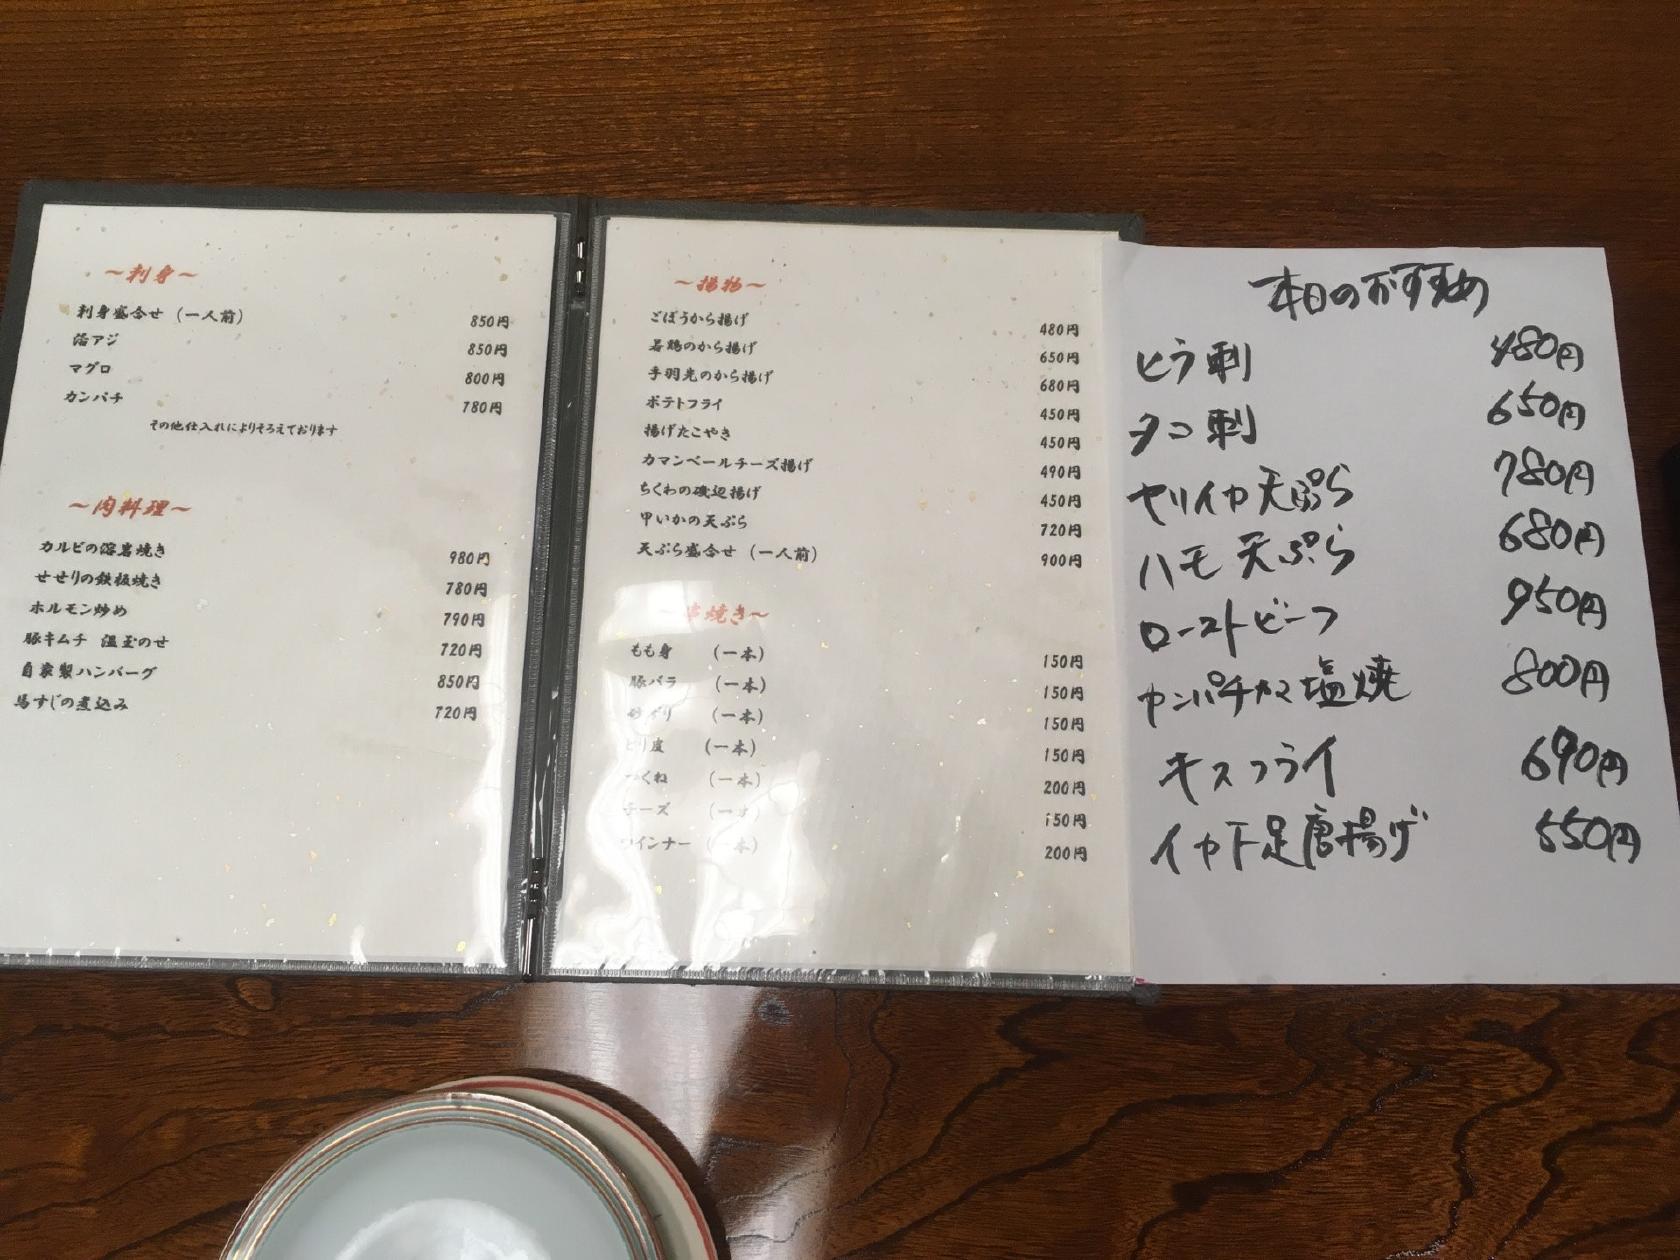 ～刺身～
刺身盛合せ（一人前） 850円
活アジ 850円
マグロ 800円
カンパチ 780円
その他仕入れによりそろえております
～肉料理～
カルビの溶岩焼き 980円
せせりの鉄板焼き 780円
ホルモン炒め 790円
豚キムチ 温玉のせ 720円
自家製ハンバーグ 850円
馬すじの煮込み 720円
～揚物～
ごぼうから揚げ 480円
若鶏のから揚げ 650円
手羽先のから揚げ 680円
ポテトフライ 450円
揚げたこやき 450円
カマンベールチーズ揚げ 490円
ちくわの磯辺揚げ 450円
甲いかの天ぷら 720円
天ぷら盛合せ（一人前） 900円
～串焼き～
もも身 （一本） 150円
豚バラ （一本） 150円
砂ずり （一本） 150円
とり皮 （一本） 150円
つくね （一本） 200円
チーズ （一本） 150円
ウインナー （一本） 200円
本日のおすすめ
ヒラ刺 480円
タコ刺 650円
ヤリイカ天ぷら 780円
ハモ天ぷら 680円
ローストビーフ 950円
カンパチカマ塩焼 800円
キスフライ 690円
イカ下足唐揚げ 550円